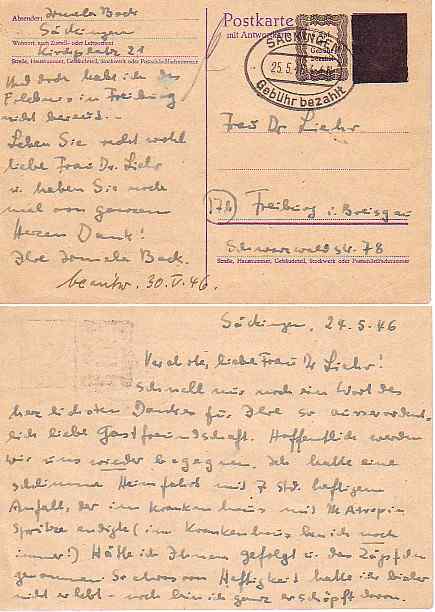 Absender: Irmela Beck
Säckingen
Wohnort, auch Zustell- oder Leitpostamt
Kirchplatz 21
Straße, Hausnummer, Gebäudeteil, Stockwerk oder Postschließfachnummer
Postkarte
mit Antwortkarte
Gebühr
bezahlt
SÄCKINGEN
25.5.46
Gebühr bezahlt
Und doch habe ich das
Erlebnis in Freiburg
nicht bereut. -
Leben Sie recht wohl
liebe Frau Dr. Liehr
u. haben Sie noch
mal von ganzem
Herzen Dank!
Ihre Irmela Beck.
beantw. 30. V. 46.
Frau Dr. Liehr
(17b) Freiburg i. Breisgau
Schwarzwaldstr. 78
Straße, Hausnummer, Gebäudeteil, Stockwerk oder Postschließfachnummer
Säckingen, 24.5.46
Verehrte, liebe Frau Dr. Liehr!
Schnell nur noch ein Wort des
herzlichsten Dankes für Ihre so ausserordent-
lich liebe Gastfreundschaft. Hoffentlich werden
wir uns wieder begegnen. Ich hatte eine
schlimme Heimfahrt mit 7 Std. heftigem
Anfall, der im Krankenhaus mit Atropin
Spritze endigte (im Krankenhaus bin ich noch
immer!) Hätte ich Ihnen gefolgt u. das Zäpfchen
genommen. So etwas von Heftigkeit hatte ich bisher
nicht erlebt - noch bin ich ganz erschöpft davon.